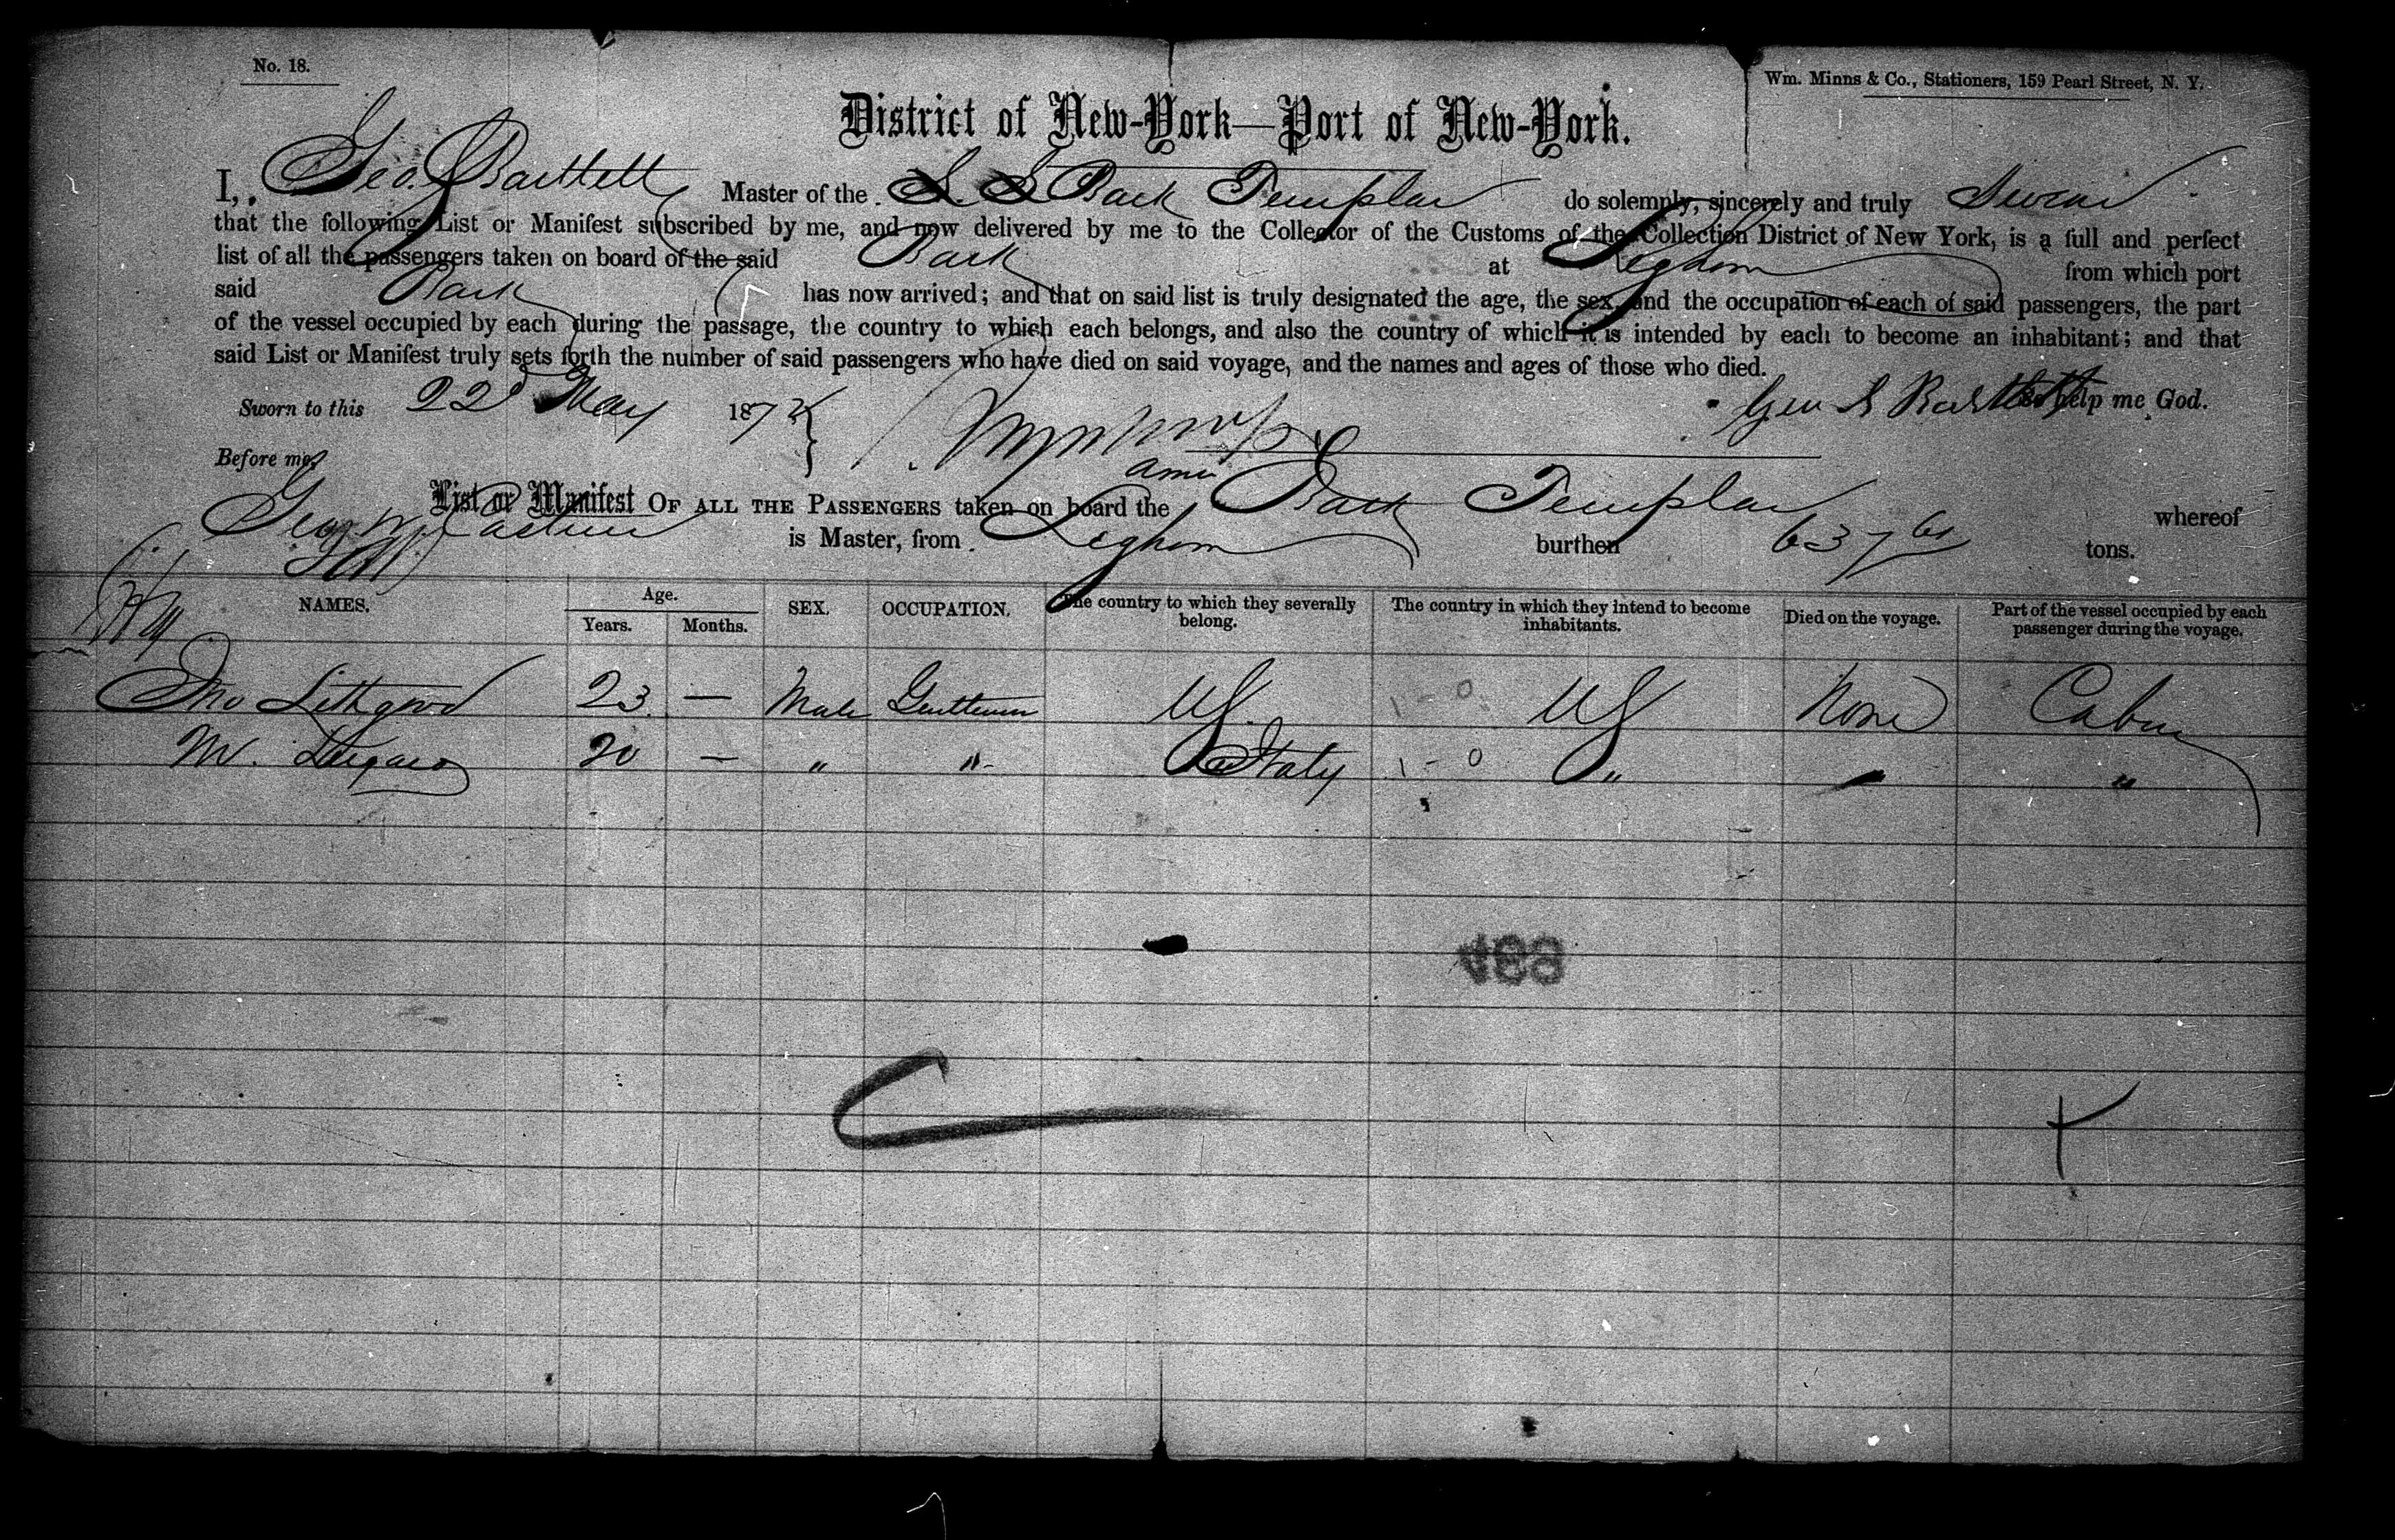 No. 18.
Wm. Minns & Co., Stationers, 159 Pearl Street, N. Y.
District of New-York—Port of New-York.
I, Geo. Bartlett Master of the Bark Templar do solemnly, sincerely and truly Swear
that the following List or Manifest subscribed by me, and now delivered by me to the Collector of the Customs of the Collection District of New York, is a full and perfect
list of all the passengers taken on board of the said Bark at Leghorn from which port
said Bark has now arrived; and that on said list is truly designated the age, the sex, and the occupation of each of said passengers, the part
of the vessel occupied by each during the passage, the country to which each belongs, and also the country of which it is intended by each to become an inhabitant; and that
said List or Manifest truly sets forth the number of said passengers who have died on said voyage, and the names and ages of those who died.
Sworn to this 22d May 1872 Geo S Bartlett So help me God.
Before me,
List or Manifest OF ALL THE PASSENGERS taken on board the Amer Bark Templar whereof
is Master, from Leghorn burthen 637 61 tons.
NAMES. Age. Years. Months. SEX. OCCUPATION. The country to which they severally belong. The country in which they intend to become inhabitants. Died on the voyage. Part of the vessel occupied by each passenger during the voyage.
Jno 23 — Male Gentleman US. US None Cabin
M. 20 — " " Italy " "